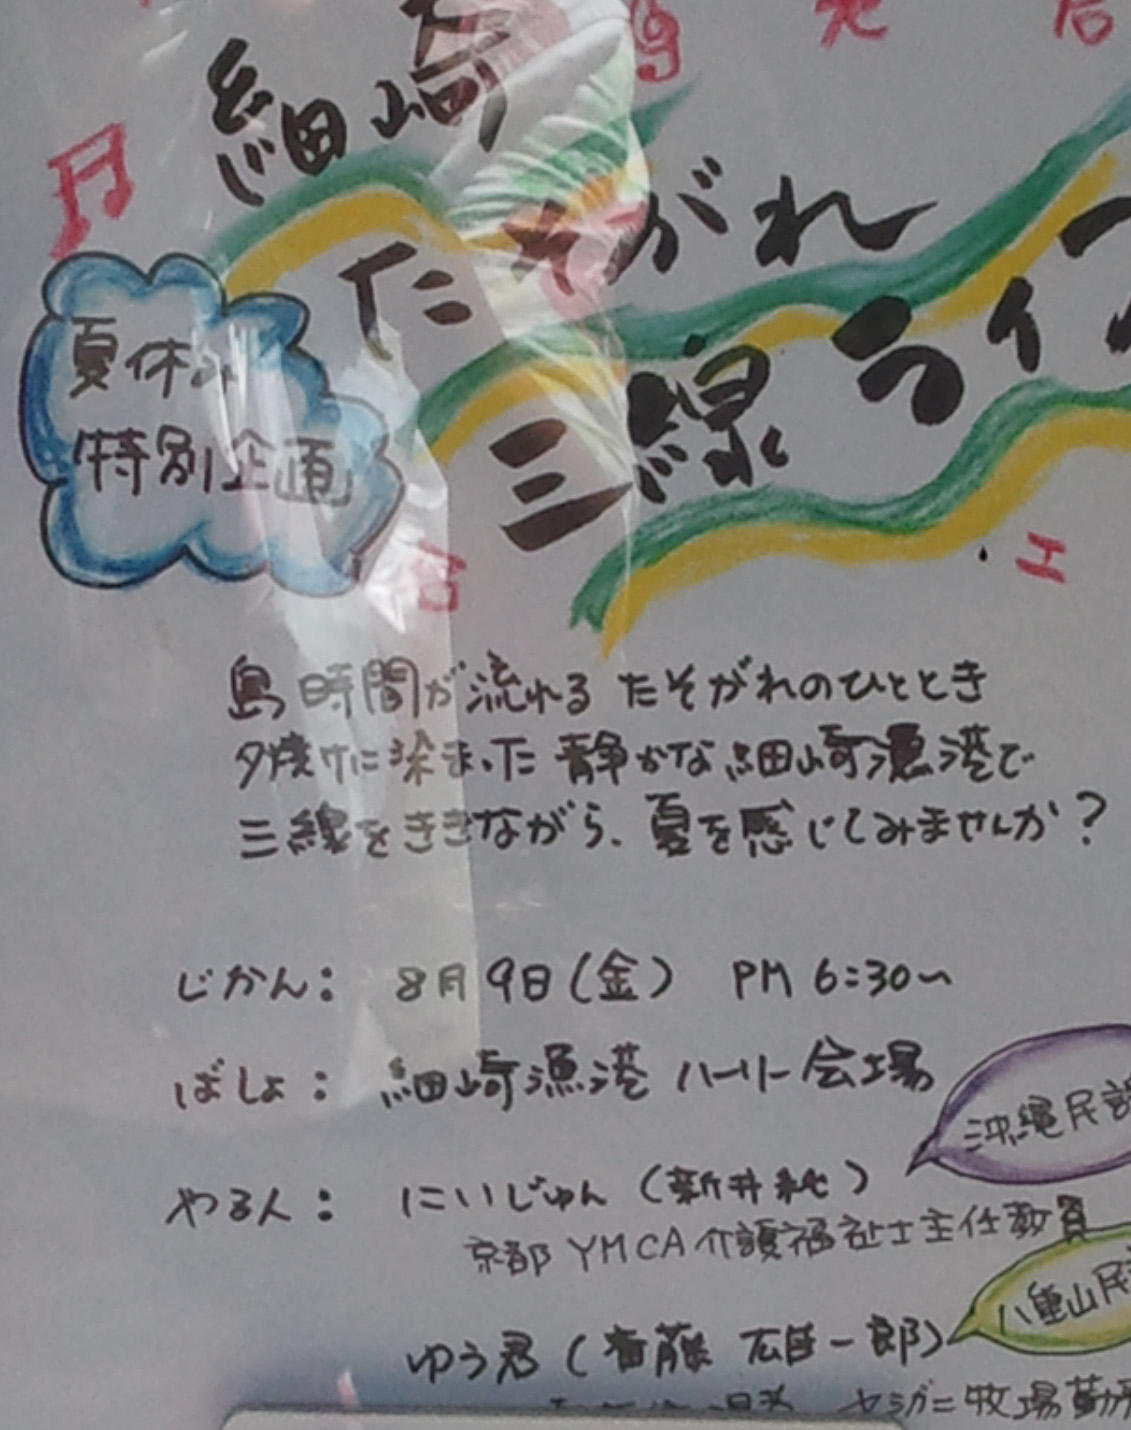 細崎
たそがれ
三線ライブ
夏休み
特別企画
合
工
島時間が流れる たそがれのひととき
夕焼けに染まった 静かな細崎漁港で
三線をききながら、夏を感じてみませんか?
じかん: 8月9日(金) PM 6:30~
ばしょ: 細崎漁港 ハーリー会場
沖縄民謡
やる人: にいじゅん (新井純)
京都YMCA介護福祉士主任教員
八重山民
ゆう君 (斎藤 雄一郎)
ヤシガニ牧場勤